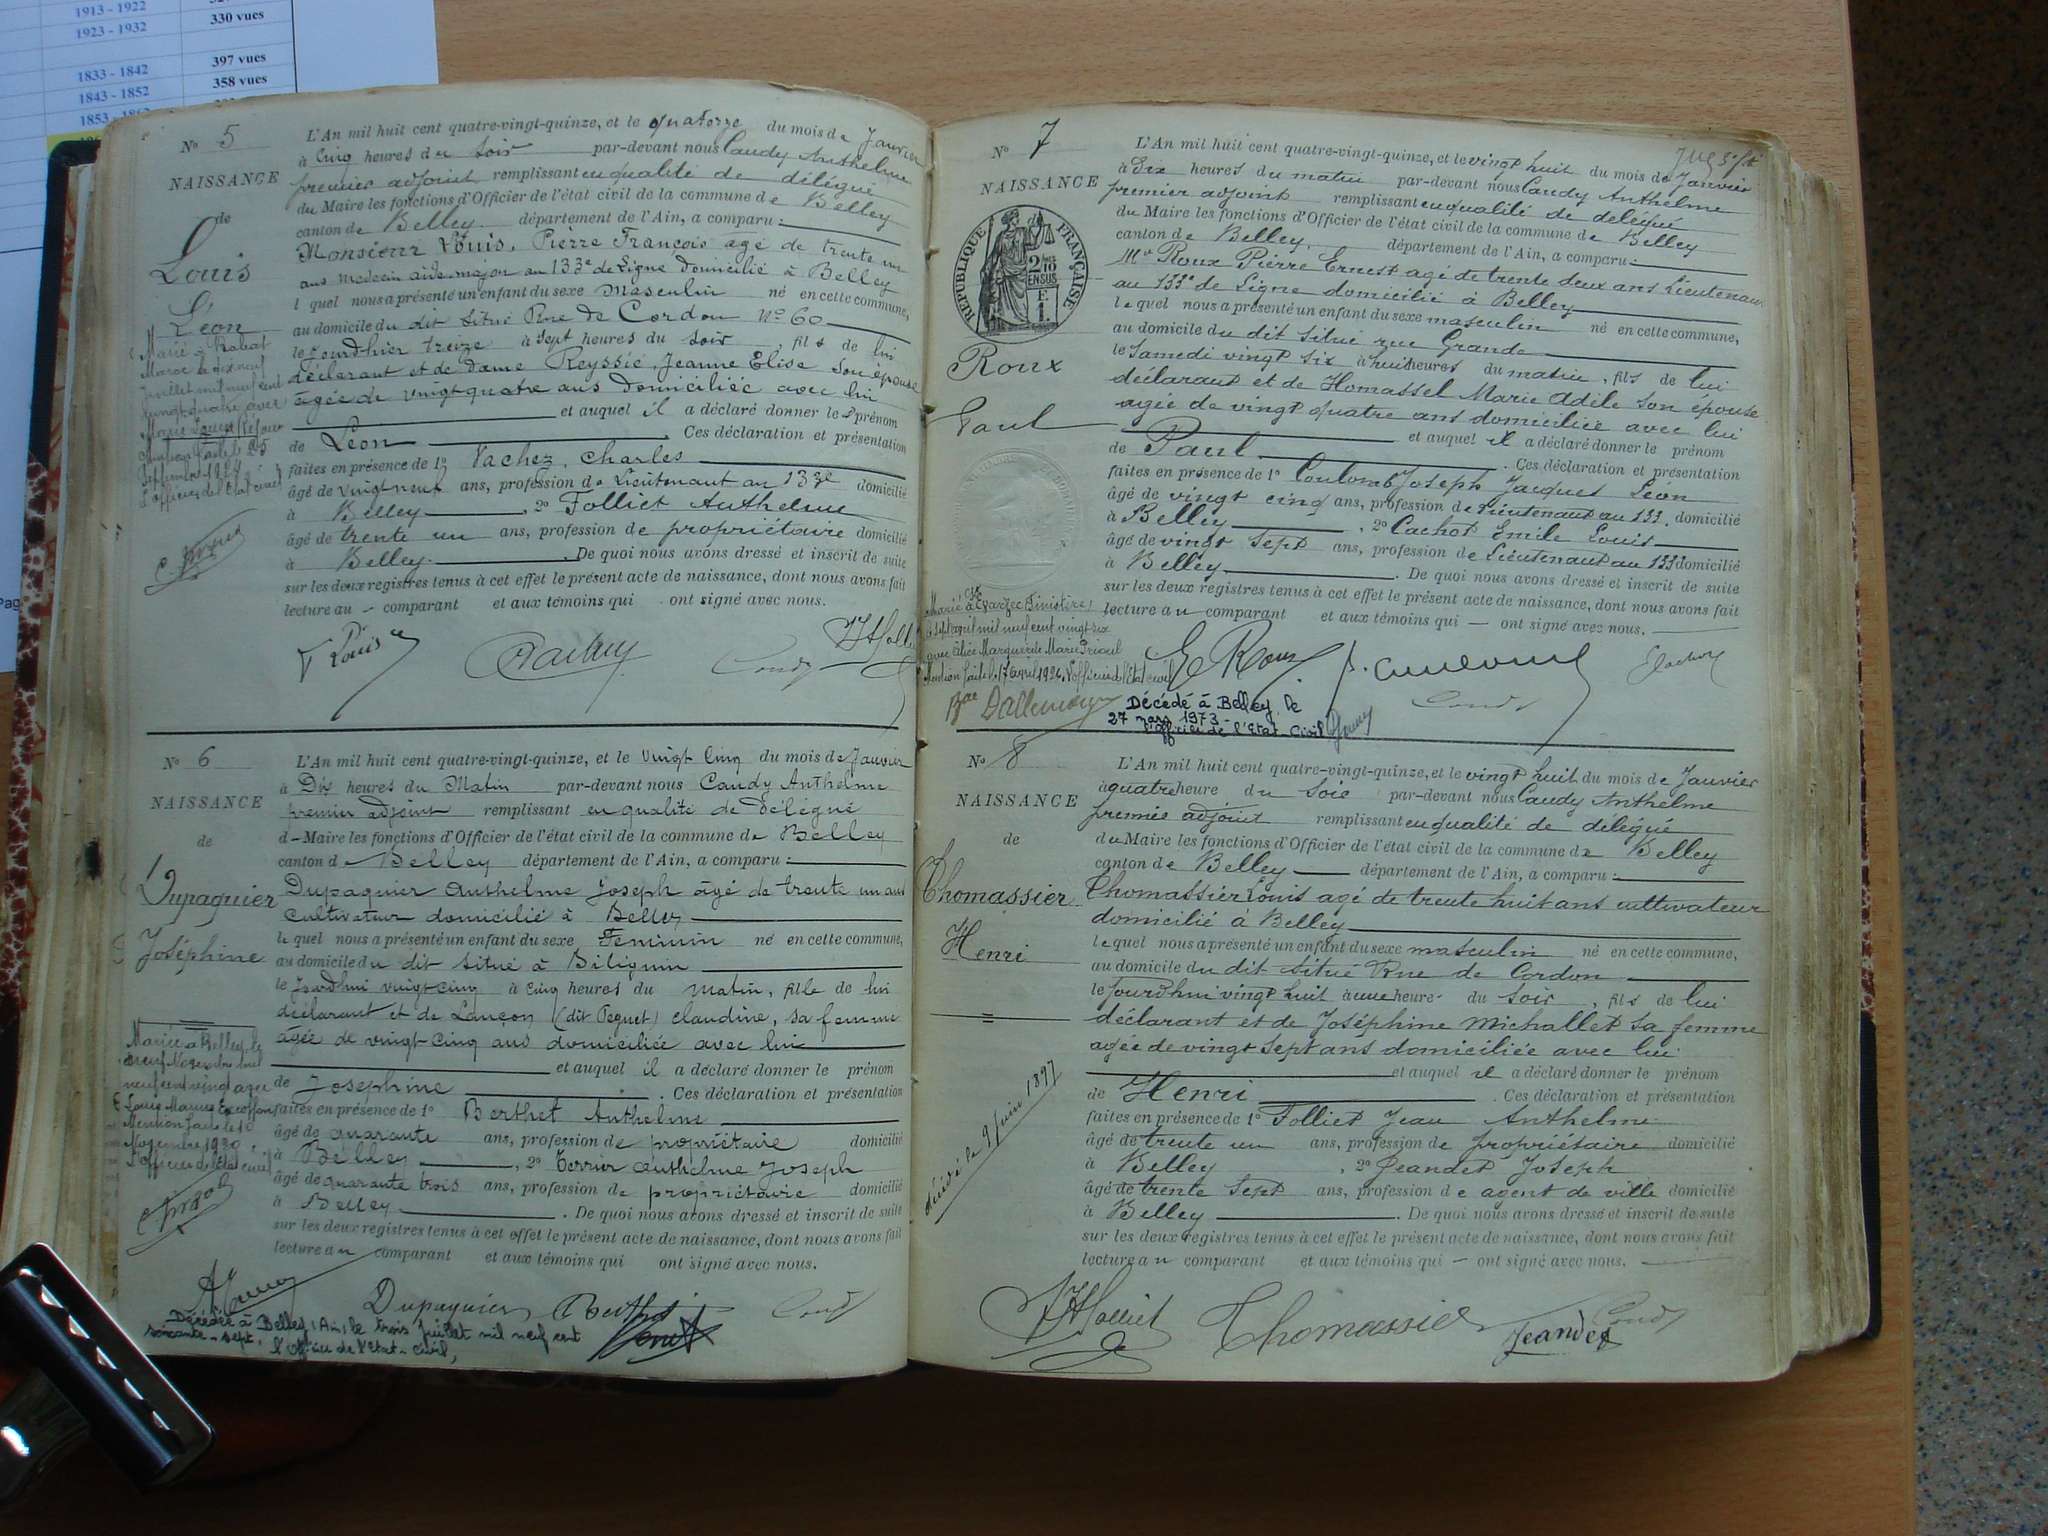 1913 - 1922
1923 - 1932
330 vues
1833 - 1842
397 vues
1843 - 1852
358 vues
1853 - 1862
Pag
N° 5
NAISSANCE
de
Louis
Léon
Marié à Rabat
Maroc le dix neuf
juillet mil neuf cent
vingt quatre avec
L'An mil huit cent quatre-vingt-quinze, et le quatorze du mois de Janvier
à Cinq heures du soir par-devant nous Caudy Anthelme
premier adjoint remplissant en qualité de délégué
du Maire les fonctions d'Officier de l'état civil de la commune de Belley
canton de Belley département de l'Ain, a comparu :
Monsieur Louis, Pierre François agé de trente un
ans Medecin aide-major au 133e de Ligne domicilié à Belley
lequel nous a présenté un enfant du sexe Masculin né en cette commune,
au domicile du dit Situé Rue de Cordon N° 60
le jourdhier treize à Sept heures du soir, fils de lui
déclarant et de Dame Reyssié, Jeanne Elise Son épouse
agée de vingt quatre ans domiciliée avec lui
et auquel il a déclaré donner le prénom
de Léon. Ces déclaration et présentation
faites en présence de 1° Vachez, Charles
âgé de vingt neuf ans, profession de Lieutenant au 133e domicilié
à Belley, 2° Folliet Anthelme
âgé de trente un ans, profession de propriétaire domicilié
à Belley. De quoi nous avons dressé et inscrit de suite
sur les deux registres tenus à cet effet le présent acte de naissance, dont nous avons fait
lecture au comparant et aux témoins qui ont signé avec nous.
N° 6
NAISSANCE
de
Dupaquier
Joséphine
Mariée à Belley le
neuf Novembre mil
neuf cent vingt avec
Mention faite le 10
Novembre 1920
L'officier de l'état civil
L'An mil huit cent quatre-vingt-quinze, et le vingt Cinq du mois de Janvier
à Dix heures du Matin par-devant nous Caudy Anthelme
premier adjoint remplissant en qualité de délégué
de Maire les fonctions d'Officier de l'état civil de la commune de Belley
canton de Belley département de l'Ain, a comparu :
Dupaquier Anthelme Joseph âgé de trente un ans
Cultivateur domicilié à Belley
lequel nous a présenté un enfant du sexe Feminin né en cette commune,
au domicile du dit situé à Billignin
le Jourdhui vingt cinq à cinq heures du matin, fille de lui
déclarant et de Lançon (dit Peguet) Claudine, sa femme
agée de vingt-Cinq ans domiciliée avec lui
et auquel il a déclaré donner le prénom
de Joséphine. Ces déclaration et présentation
faites en présence de 1° Berthet Anthelme
âgé de quarante ans, profession de propriétaire domicilié
à Belley, 2° Terrier Anthelme Joseph
âgé de quarante trois ans, profession de propriétaire domicilié
à Belley. De quoi nous avons dressé et inscrit de suite
sur les deux registres tenus à cet effet le présent acte de naissance, dont nous avons fait
lecture au comparant et aux témoins qui ont signé avec nous.
Dupaquier
Décédée à Belley (Ain) le trois juillet mil neuf cent
soixante-sept,
l'officier de l'Etat-Civil,
N° 7
NAISSANCE
RÉPUBLIQUE FRANÇAISE
2/10
EN SUS
F.
1.
Roux
Paul
L'An mil huit cent quatre-vingt-quinze, et le vingt huit du mois de Janvier
à Dix heures du matin par-devant nous Caudy Anthelme
premier adjoint remplissant en qualité de délégué
du Maire les fonctions d'Officier de l'état civil de la commune de Belley
canton de Belley, département de l'Ain, a comparu :
Mr Roux Pierre Ernest agé de trente deux ans Lieutenant
au 133e de Ligne domicilié à Belley
lequel nous a présenté un enfant du sexe masculin né en cette commune,
au domicile du dit situé rue Grande
le Samedi vingt six à huit heures du matin, fils de lui
déclarant et de Homassel Marie Adèle son épouse
agée de vingt quatre ans domiciliée avec lui
et auquel il a déclaré donner le prénom
de Paul. Ces déclaration et présentation
faites en présence de 1° Coulomb Joseph Jacques Léon
âgé de vingt cinq ans, profession de Lieutenant au 133 domicilié
à Belley, 2° Cachot Emile Louis
âgé de vingt sept ans, profession de Lieutenant au 133 domicilié
à Belley. De quoi nous avons dressé et inscrit de suite
sur les deux registres tenus à cet effet le présent acte de naissance, dont nous avons fait
lecture au comparant et aux témoins qui — ont signé avec nous.
le sept avril mil neuf cent vingt six
Mention faite le 17 avril 1926. L'officier de l'Etat civil
E Roux
Décédé à Belley, le
27 mars 1973
l'officier de l'Etat Civil
N° 8
NAISSANCE
de
Thomassier
Henri
décédé le 9 Juin 1897
L'An mil huit cent quatre-vingt-quinze, et le vingt huit du mois de Janvier
à quatre heure du Soir par-devant nous Caudy Anthelme
premier adjoint remplissant en qualité de délégué
du Maire les fonctions d'Officier de l'état civil de la commune de Belley
canton de Belley département de l'Ain, a comparu :
Thomassier Louis agé de trente huit ans cultivateur
domicilié à Belley
lequel nous a présenté un enfant du sexe masculin né en cette commune,
au domicile du dit situé Rue de Cordon
le jourd'hui vingt huit à une heure du soir, fils de lui
déclarant et de Joséphine Michallet sa femme
agée de vingt sept ans domiciliée avec lui
et auquel il a déclaré donner le prénom
de Henri. Ces déclaration et présentation
faites en présence de 1° Folliet Jean Anthelme
âgé de trente un ans, profession de propriétaire domicilié
à Belley, 2° Jeandet Joseph
âgé de trente sept ans, profession de agent de ville domicilié
à Belley. De quoi nous avons dressé et inscrit de suite
sur les deux registres tenus à cet effet le présent acte de naissance, dont nous avons fait
lecture au comparant et aux témoins qui — ont signé avec nous.
Folliet Thomassier Jeandet